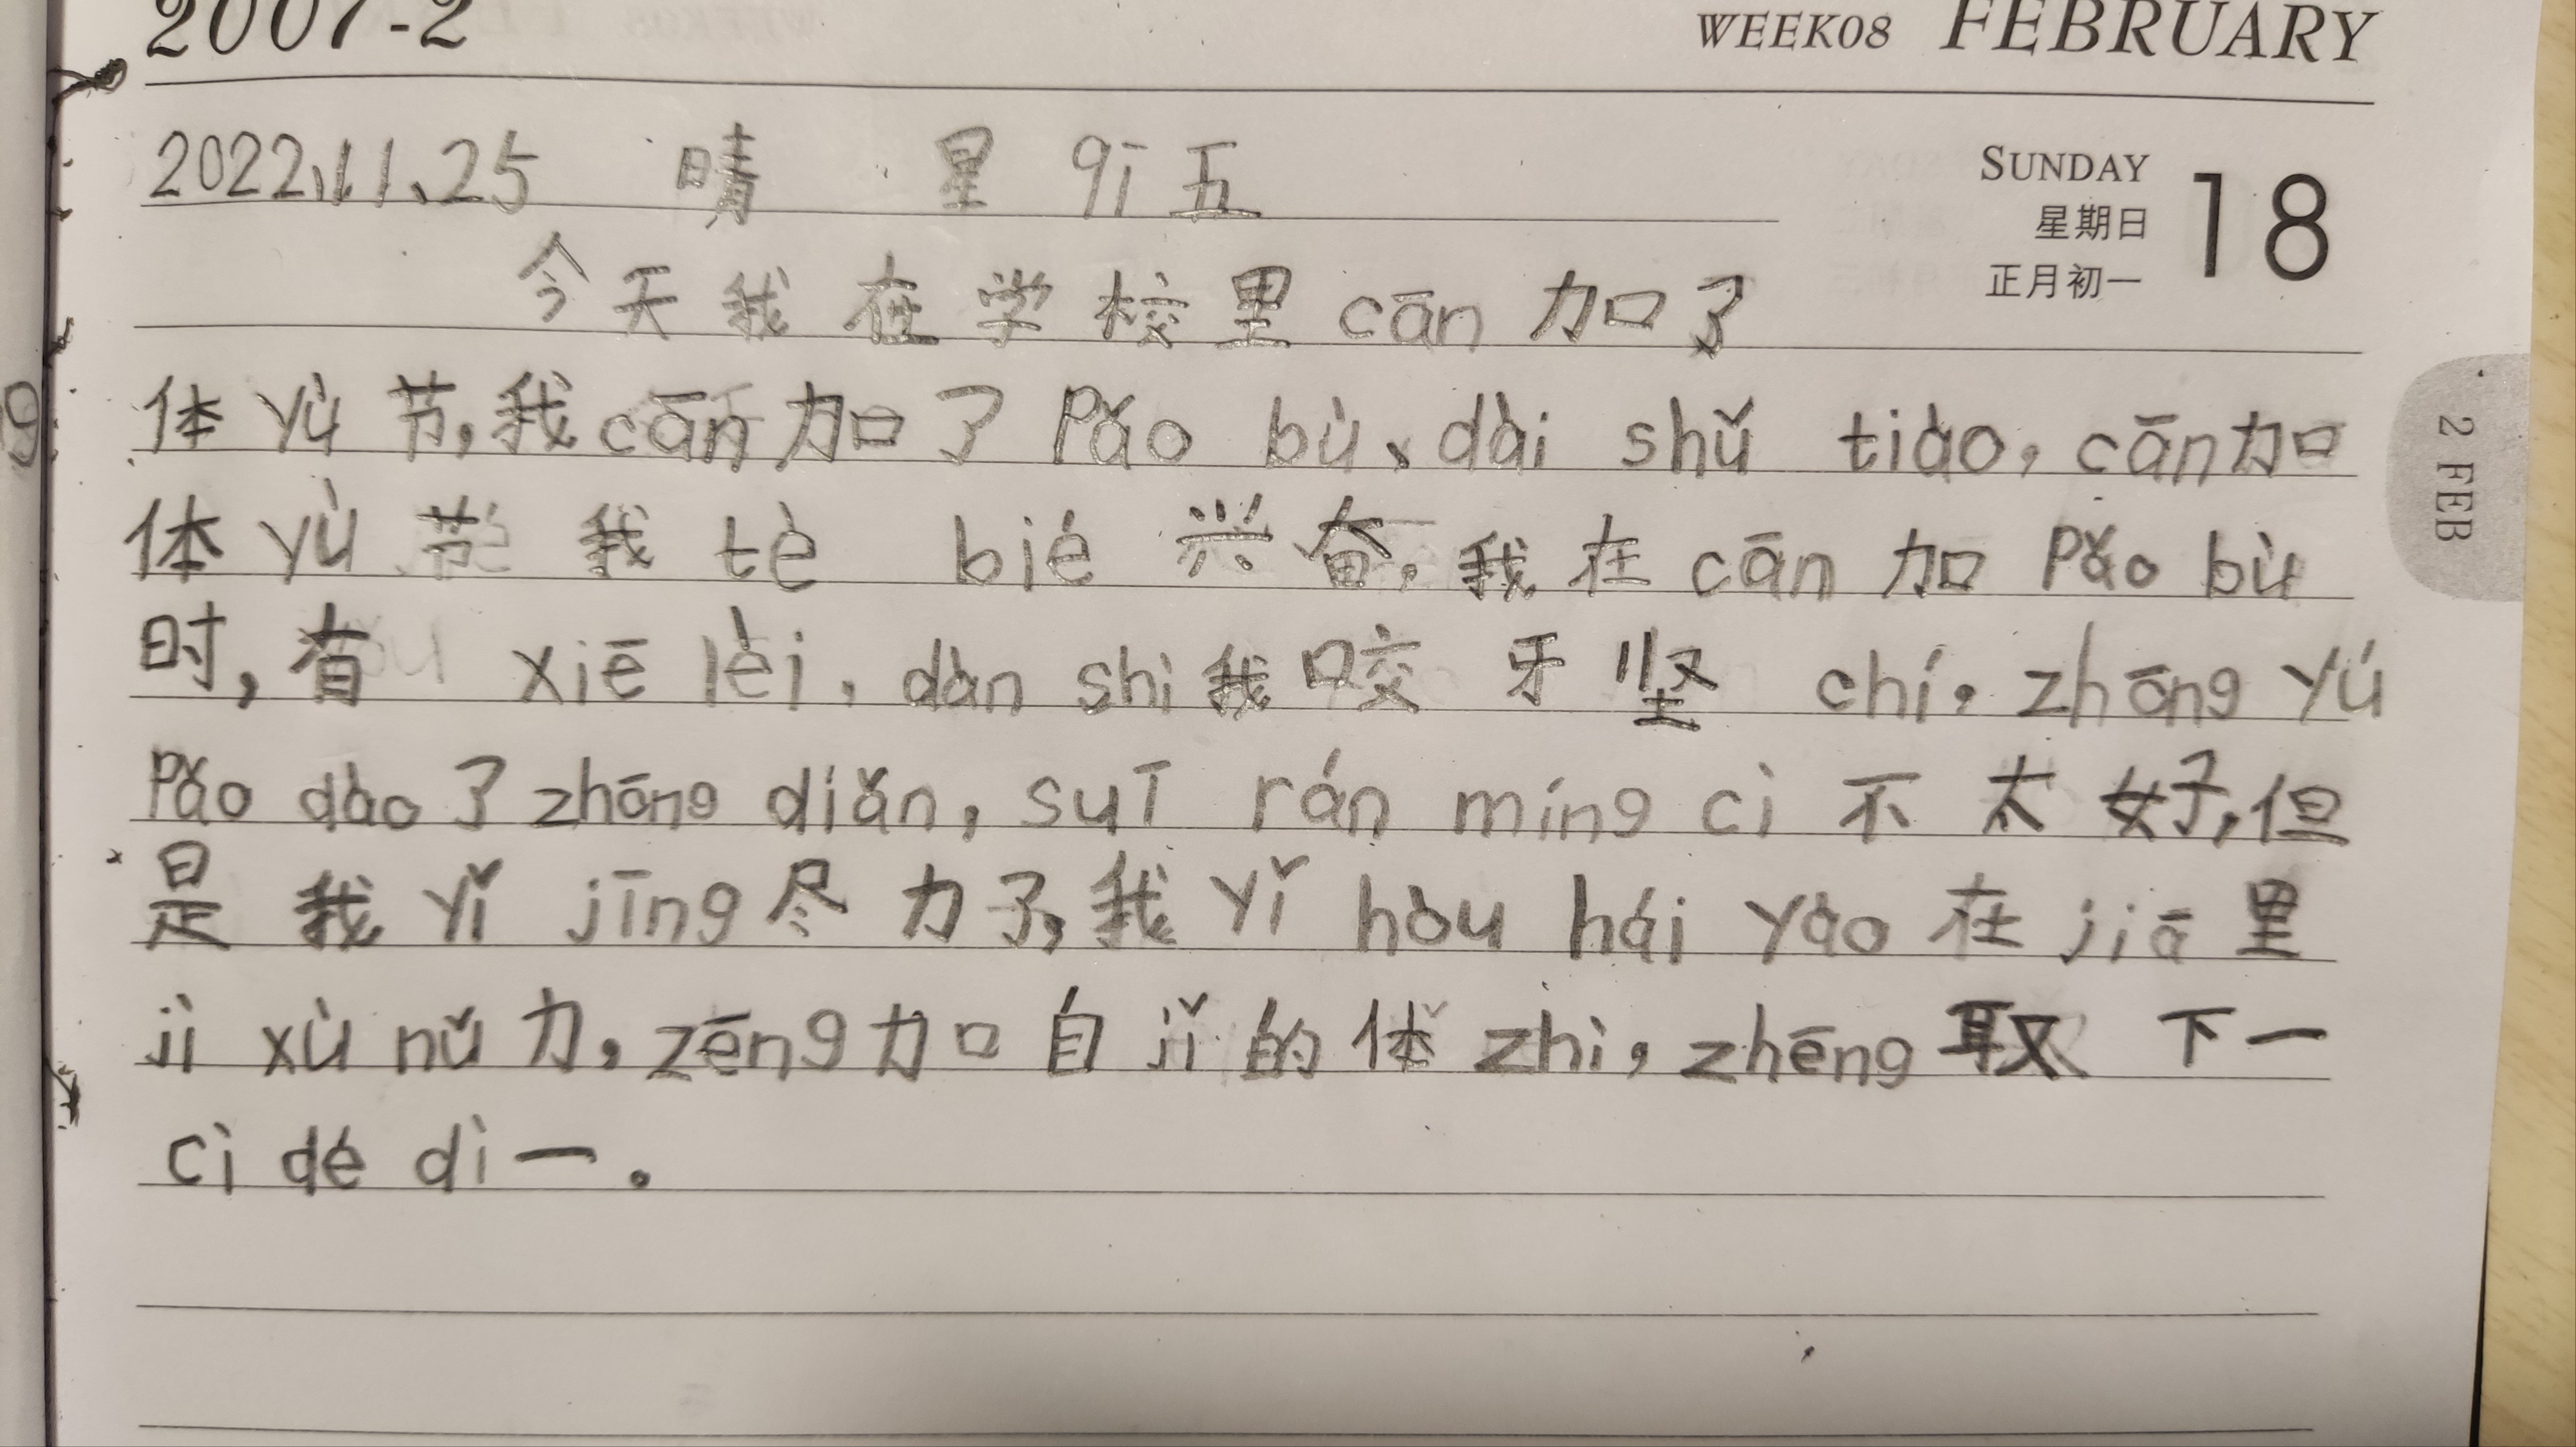 2007-2 WEEK08 FEBRUARY
2022.11.25 晴 星 qī 五
SUNDAY 18
星期日
正月初一
今天我在学校里 cān 加了
体 yù 节,我 cān 加了 Pǎo bù、dài shǔ tiào, cān 加
体 yù 节 我 tè bié 兴奋,我在 cān 加 Pǎo bù
时,有 xiē lèi, dàn shì 我咬牙坚 chí, zhōng yú
Pǎo dào 了 zhōng diǎn, suī rán míng cì 不太好,但
是我 yǐ jīng 尽力了,我 yǐ hòu hái yào 在 jiā 里
jì xù nǔ 力, zēng 加自 jǐ 的体 zhì, zhēng 取下一
cì dé dì 一。
2 FEB